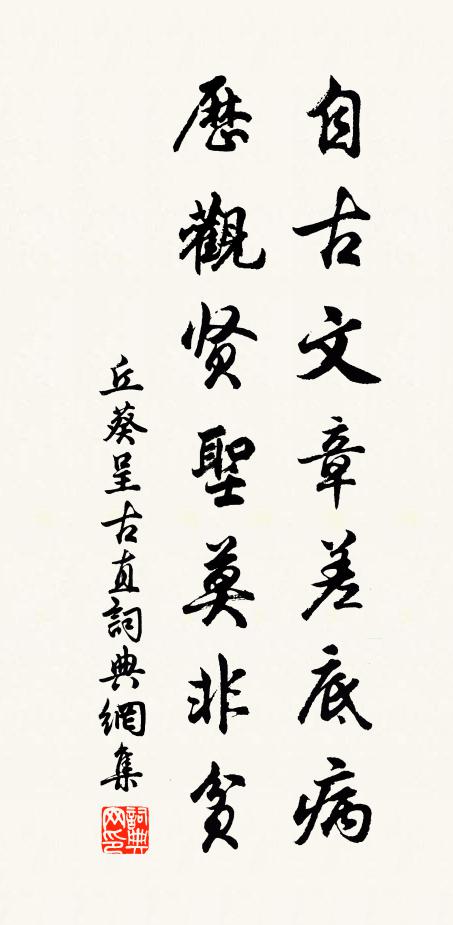 自古文章差底病
歷觀贤聖莫非貧
丘葵呈古直詞典網集
詞典网印